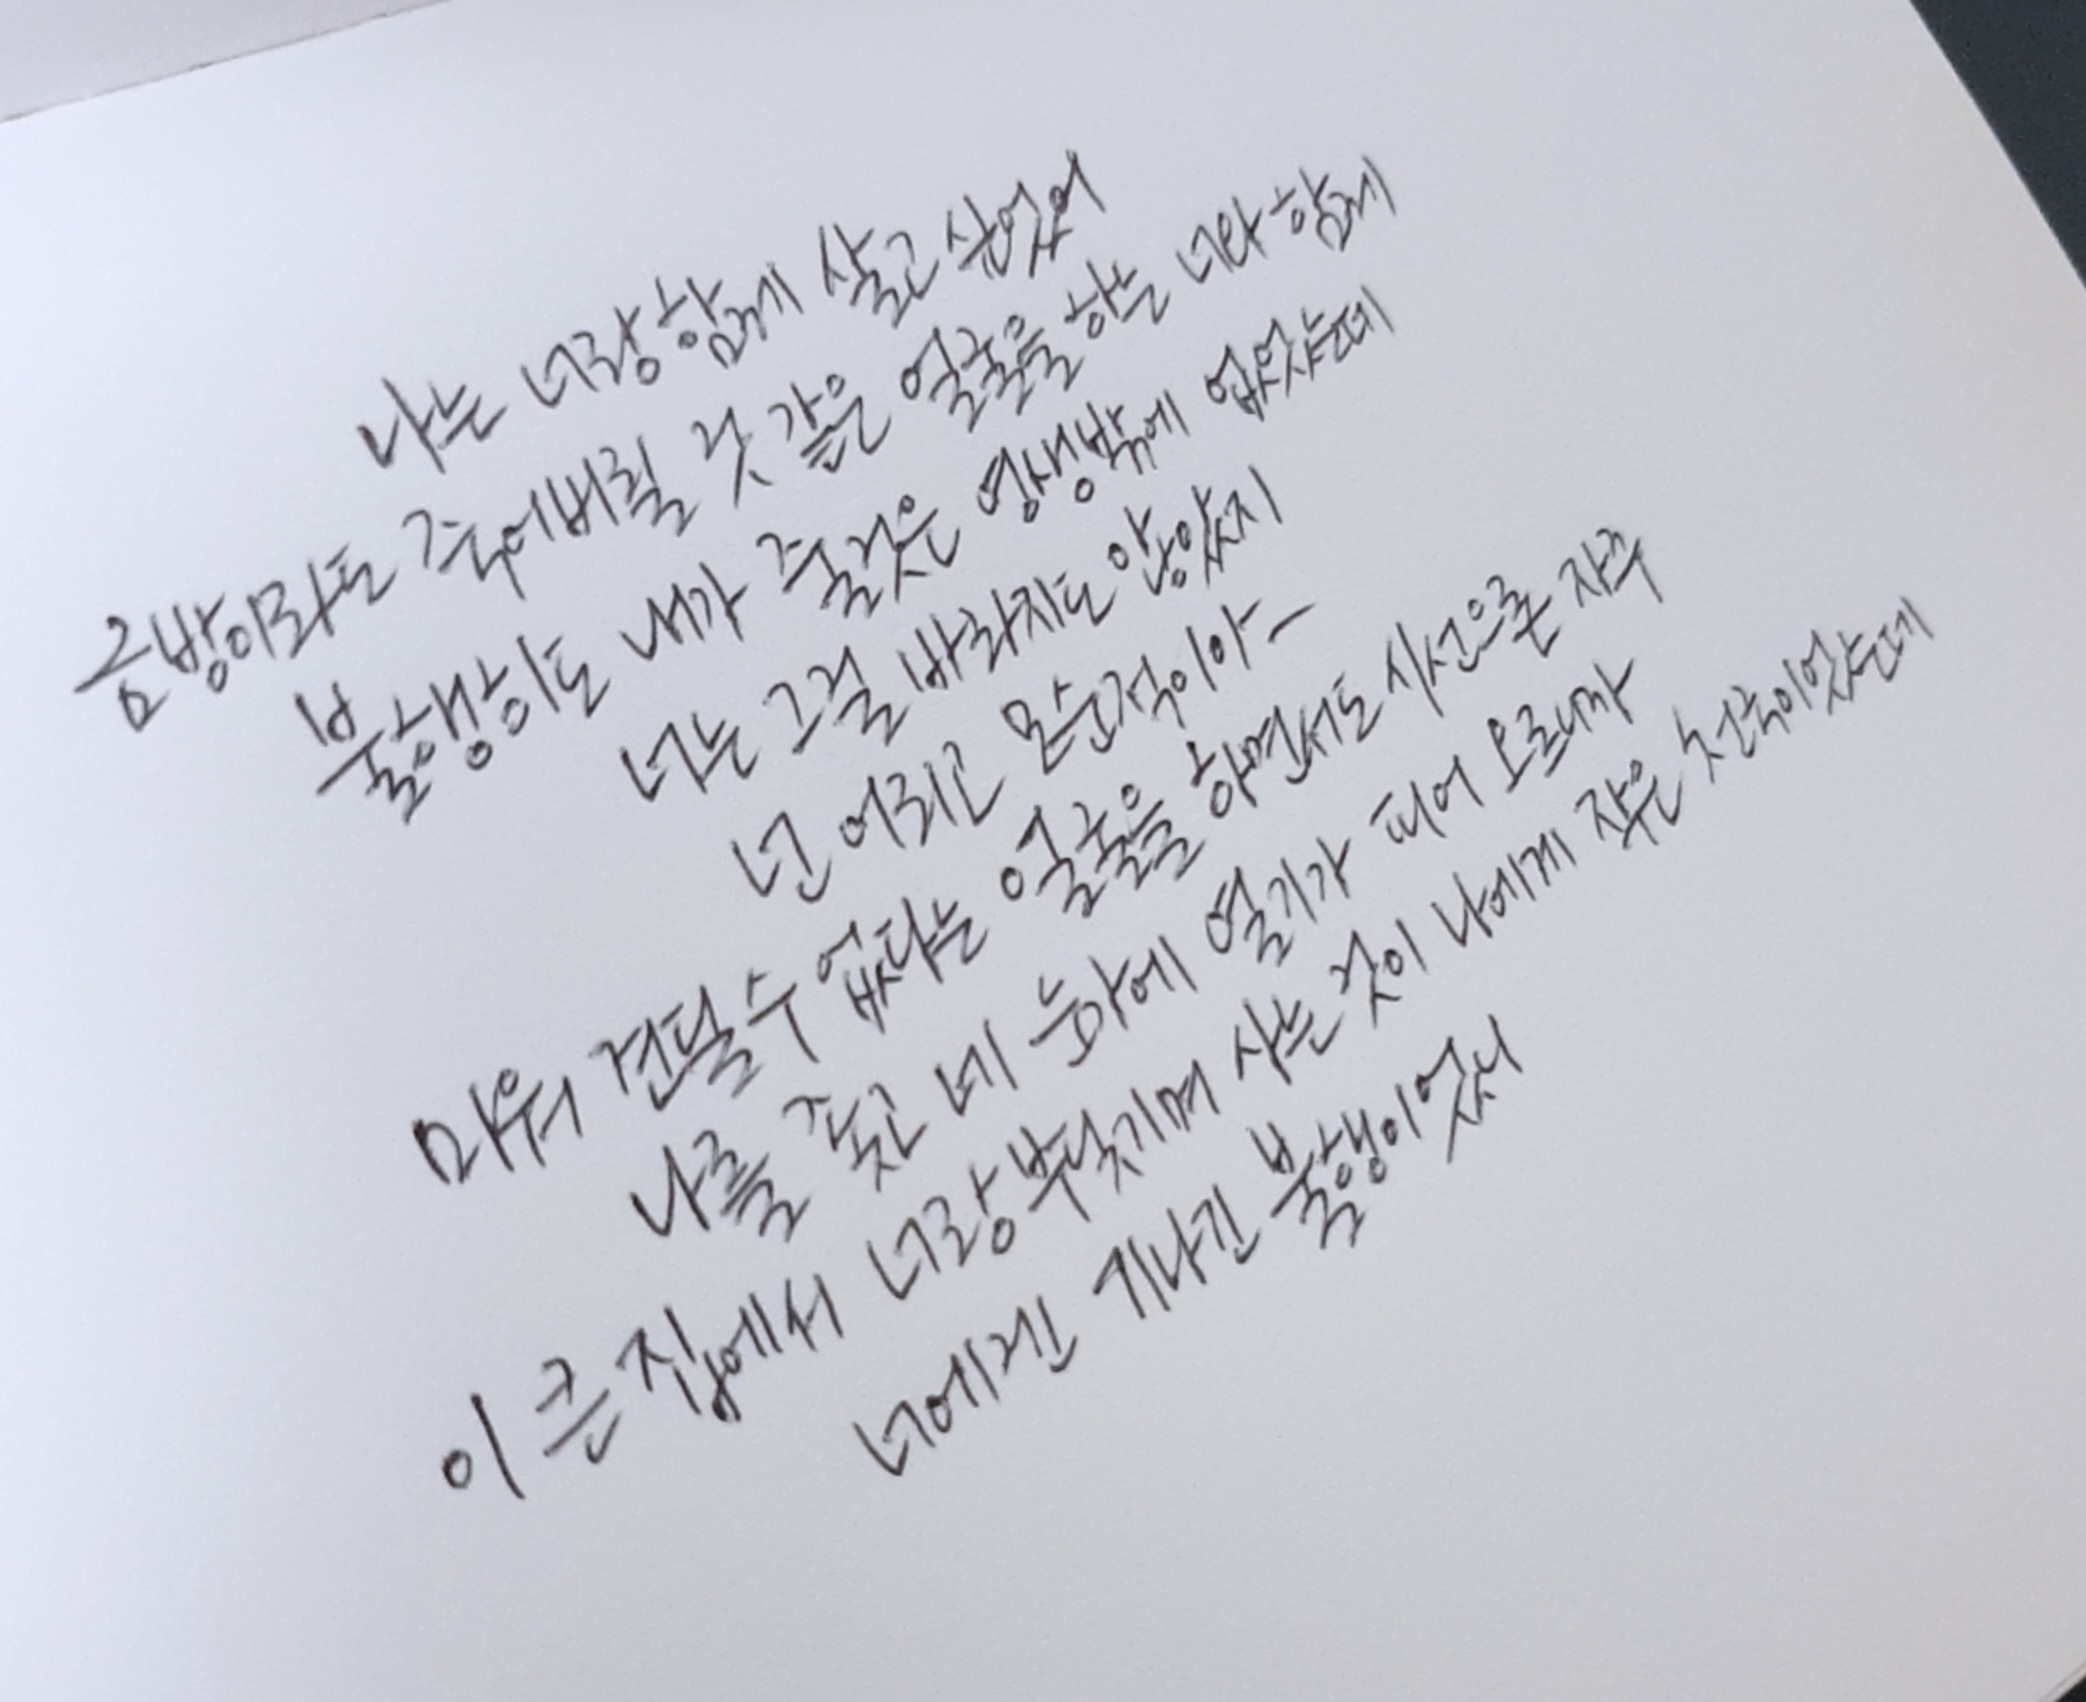 나는 너랑 함께 살고 싶었어
금방이라도 죽어버릴 것 같은 얼굴을 하는 너와 함께
불행히도 내가 줄 것은 영생밖에 없었는데
너는 그걸 바라지도 않았지
넌 어리고 모순적이야-
미워 견딜 수 없다는 얼굴을 하면서도 시선으론 자꾸
나를 쫓고 네 눈가에 열기가 피어 오르니까
이 큰 집에서 너랑 부딪히며 사는 것이 나에게 작은 천국이었는데
너에겐 기나긴 불행이었지